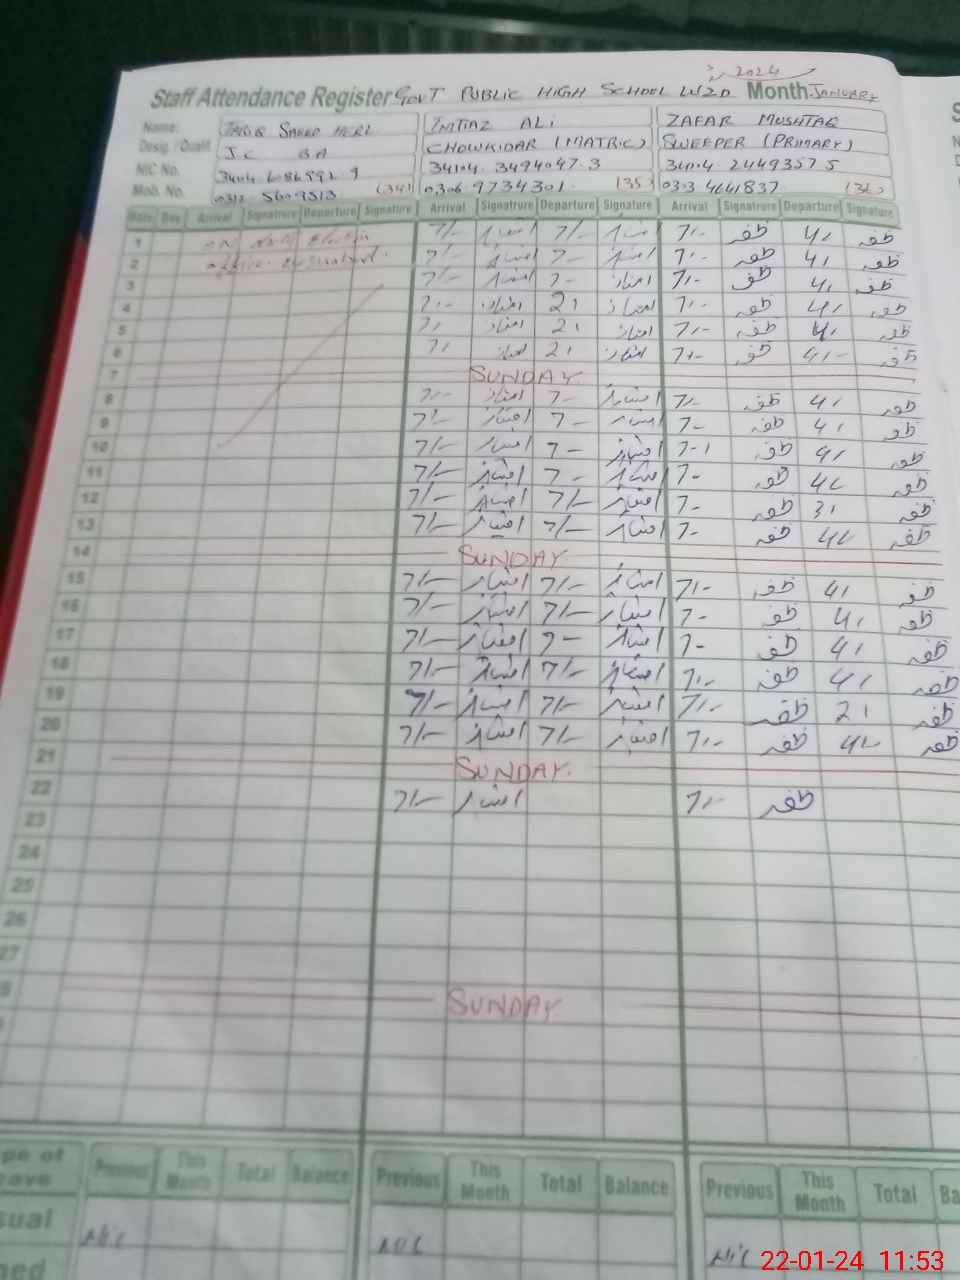 2024
Staff Attendance Register GOVT PUBLIC HIGH SCHOOL WZD Month JANUARY
Name: TARIQ SAEED IMTIAZ ALI ZAFAR MUSHTAQ
Desig./Qualif. J.C BA CHOWKIDAR (MATRIC) SWEEPER (PRIMARY)
NIC No. 34104.3494047.3 34104.2449357 5
Mob. No. (34) 0306 9734301. (35) 0303 4641837 (36)
Date Day Arrival Signatrure Departure Signature Arrival Signatrure Departure Signature Arrival Signatrure Departure Signature
1 7/- امتیاز 7/- امتیاز 7/- ظفر 4/ ظفر
2 7/- امتیاز 7- امتیاز 7/- ظفر 4/ ظفر
3 7/- امتیاز 7- امتیاز 7/- ظفر 4/ ظفر
4 7/- امتیاز 2/ امتیاز 7/- ظفر 4/ ظفر
5 7/ امتیاز 2/ امتیاز 7/- ظفر 4/ ظفر
6 7/ امتیاز 2/ امتیاز 7/- ظفر 4/- ظفر
7 SUNDAY
8 7/- امتیاز 7- امتیاز 7/- ظفر 4/ ظفر
9 7/- امتیاز 7- امتیاز 7- ظفر 4/ ظفر
10 7/- امتیاز 7- امتیاز 7-/ ظفر 4/ ظفر
11 7/- امتیاز 7- امتیاز 7- ظفر 4/ ظفر
12 7/- امتیاز 7/- امتیاز 7- ظفر 3/ ظفر
13 7/- امتیاز 7/- امتیاز 7- ظفر 4/ ظفر
14 SUNDAY
15 7/- امتیاز 7/- امتیاز 7/- ظفر 4/ ظفر
16 7/- امتیاز 7/- امتیاز 7- ظفر 4/ ظفر
17 7/- امتیاز 7- امتیاز 7- ظفر 4/ ظفر
18 7/- امتیاز 7/- امتیاز 7/- ظفر 4/ ظفر
19 7/- امتیاز 7/- امتیاز 7/- ظفر 2/ ظفر
20 7/- امتیاز 7/- امتیاز 7/- ظفر 4/ ظفر
21 SUNDAY.
22 7/- امتیاز 7/- ظفر
23
24
25
26
27
SUNDAY
pe of Previous This Month Total Balance Previous This Month Total Balance Previous This Month Total Ba
eave
sual Nil Nil Nil
ned
22-01-24 11:53